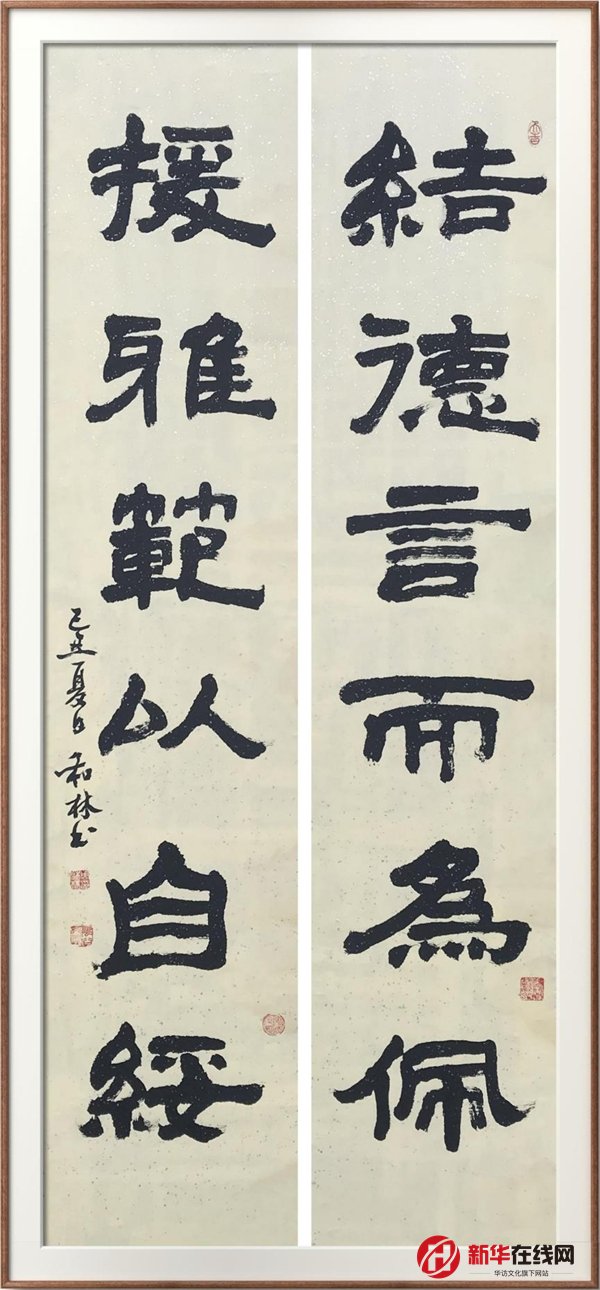 結德言而為佩
援雅範以自綏
己丑夏日
和林书
新华在线网
华访文化旗下网站